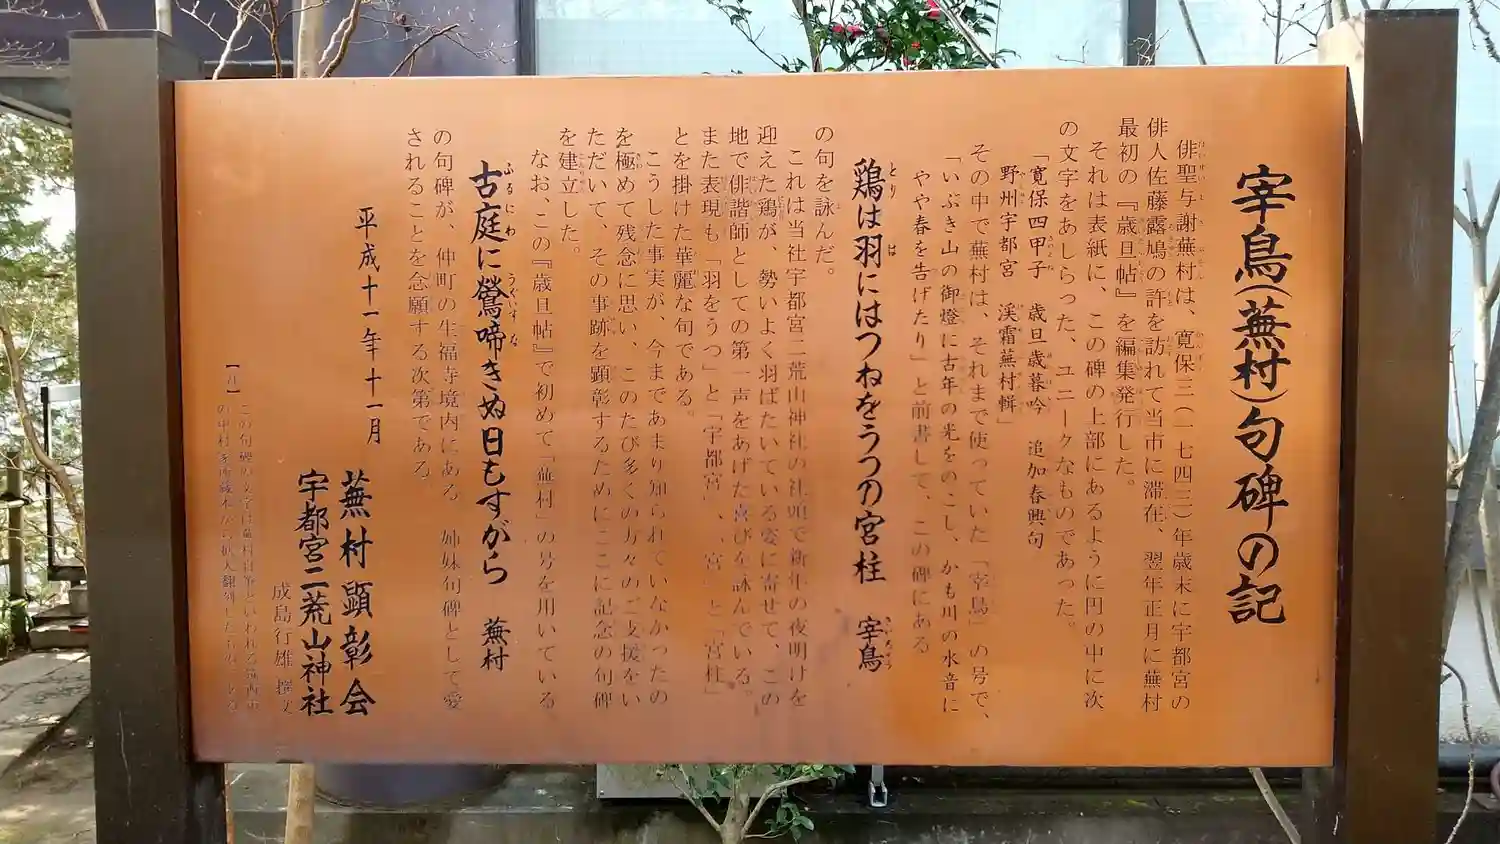 宰鳥(蕪村)句碑の記
俳聖与謝蕪村は、寛保三(一七四三)年歳末に宇都宮の
俳人佐藤露鳩の許を訪れて当市に滞在、翌年正月に蕪村
最初の『歳旦帖』を編集発行した。
それは表紙に、この碑の上部にあるように円の中に次
の文字をあしらった、ユニークなものであった。
「寛保四甲子 歳旦歳暮吟 追加春興句
野州宇都宮 渓霜蕪村輯」
その中で蕪村は、それまで使っていた「宰鳥」の号で、
「いぶき山の御燈に古年の光をのこし、かも川の水音に
やや春を告げたり」と前書して、この碑にある
鶏は羽にはつねをうつの宮柱 宰鳥
の句を詠んだ。
これは当社宇都宮二荒山神社の社頭で新年の夜明けを
迎えた鶏が、勢いよく羽ばたいている姿に寄せて、この
地で俳諧師としての第一声をあげた喜びを詠んでいる。
また表現も「羽をうつ」と「宇都宮」、「宮」と「宮柱」
とを掛けた華麗な句である。
こうした事実が、今まであまり知られていなかったの
を極めて残念に思い、このたび多くの方々のご支援をい
ただいて、その事跡を顕彰するためにここに記念の句碑
を建立した。
なお、この『歳旦帖』で初めて「蕪村」の号を用いている
古庭に鶯啼きぬ日もすがら 蕪村
の句碑が、仲町の生福寺境内にある 姉妹句碑として愛
されることを念願する次第である
平成十一年十一月
蕪村顕彰会
宇都宮二荒山神社
成島行雄 撰文
この句碑の文字は蕪村自筆といわれる
の中村家所蔵本から拡大翻刻したものである